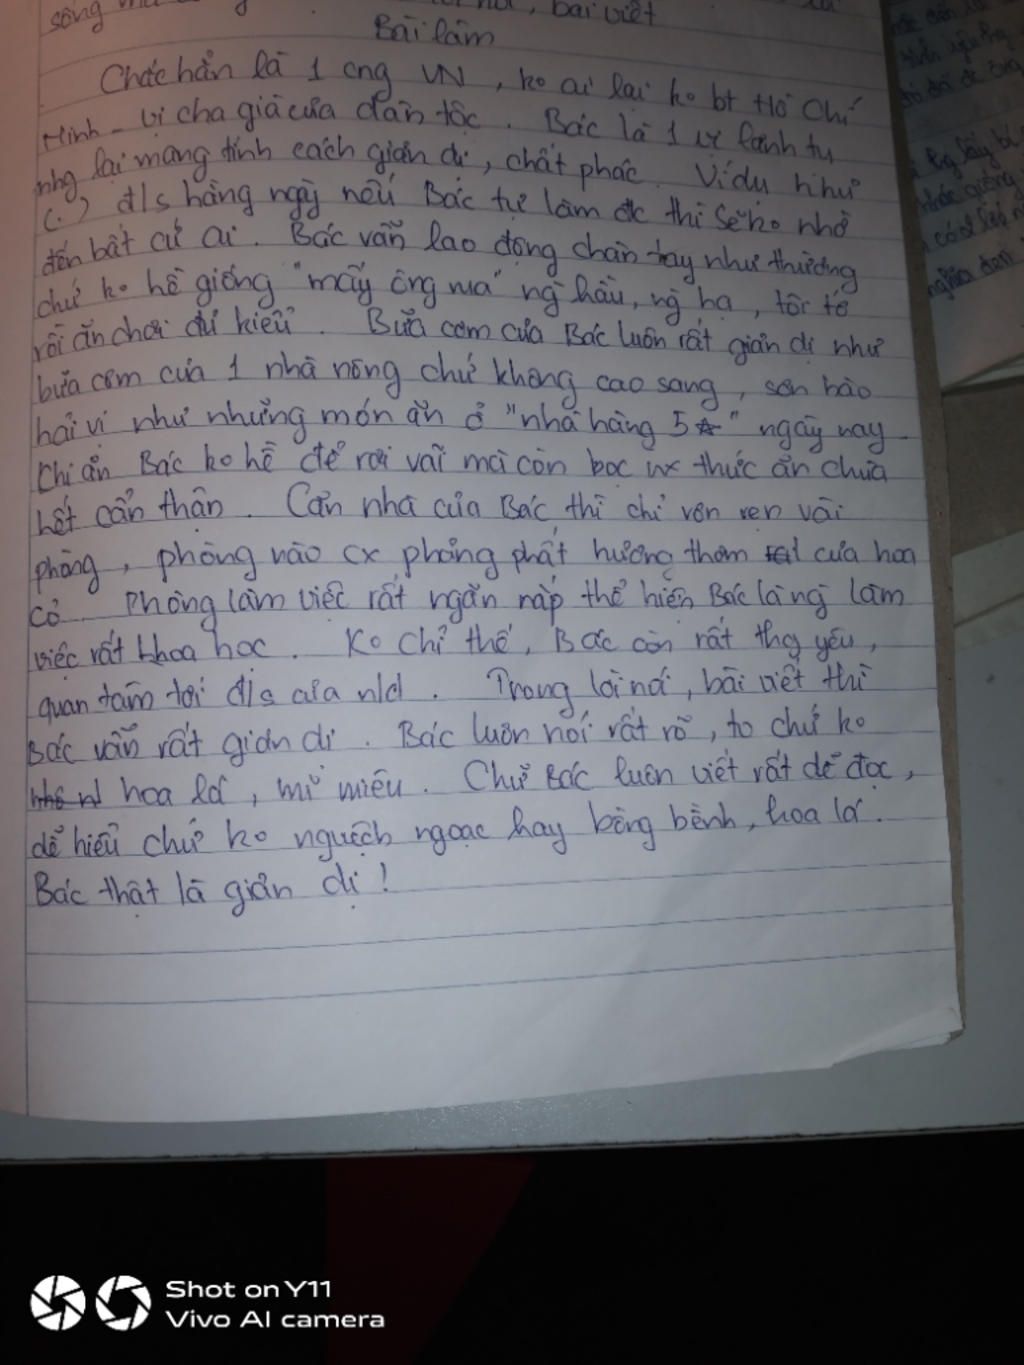 sống
, bài viết
Bài làm
Chắc hẳn là 1 cng VN, ko ai lại ko bt Hồ Chí
Minh - vị cha già của dân tộc. Bác là 1 vị lãnh tụ
nhg lại mang tính cách giản dị, chất phác. Ví dụ như
(.) đ/s hằng ngày nếu Bác tự làm đc thì sẽ ko nhờ
đến bất cứ ai. Bác vẫn lao động chân tay như thường
chứ ko hề giống "mấy ông vua" ng hầu, ng hạ, tôi tớ
rồi ăn chơi đủ kiểu. Bữa cơm của Bác luôn rất giản dị như
bữa cơm của 1 nhà nông chứ không cao sang, sơn hào
hải vị như những món ăn ở "nhà hàng 5☆" ngày nay.
Khi ăn Bác ko hề để rơi vãi mà còn bọc thức ăn chưa
hết cẩn thận. Căn nhà của Bác thì chỉ vỏn vẹn vài
phòng, phòng nào cx phảng phất hương thơm của hoa
cỏ. Phòng làm việc rất ngăn nắp thể hiện Bác là ng làm
việc rất khoa học. Ko chỉ thế, Bác còn rất thg yêu,
quan tâm tới đ/s của n/d. Trong lời nói, bài viết thì
Bác vẫn rất giản dị. Bác luôn nói rất rõ, to chứ ko
hoa lá, mĩ miều. Chữ Bác luôn viết rất dễ đọc,
dễ hiểu chứ ko nguệch ngoạc hay bồng bềnh, hoa lá.
Bác thật là giản dị!
Shot on Y11
Vivo AI camera